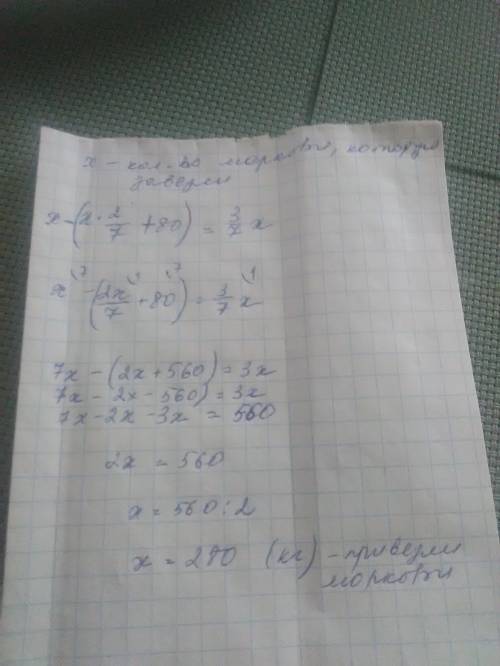 x - кол-во моркови, которую
завезли
x - (x · 2/7 + 80) = 3/7 x
x - (2x/7 + 80) = 3/7 x
7x - (2x + 560) = 3x
7x - 2x - 560) = 3x
7x - 2x - 3x = 560
2x = 560
x = 560 : 2
x = 280 (кг) - привезли
моркови